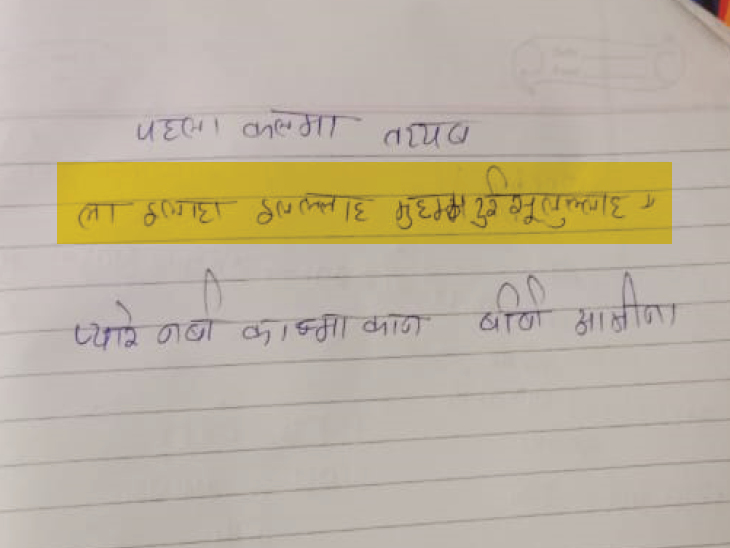 पहला कलमा तय्यब
ला इलाहा इलल्लाह मुहम्मदुर्रसूलुल्लाह ॥
प्यारे नबी का कान बीबी आमीना